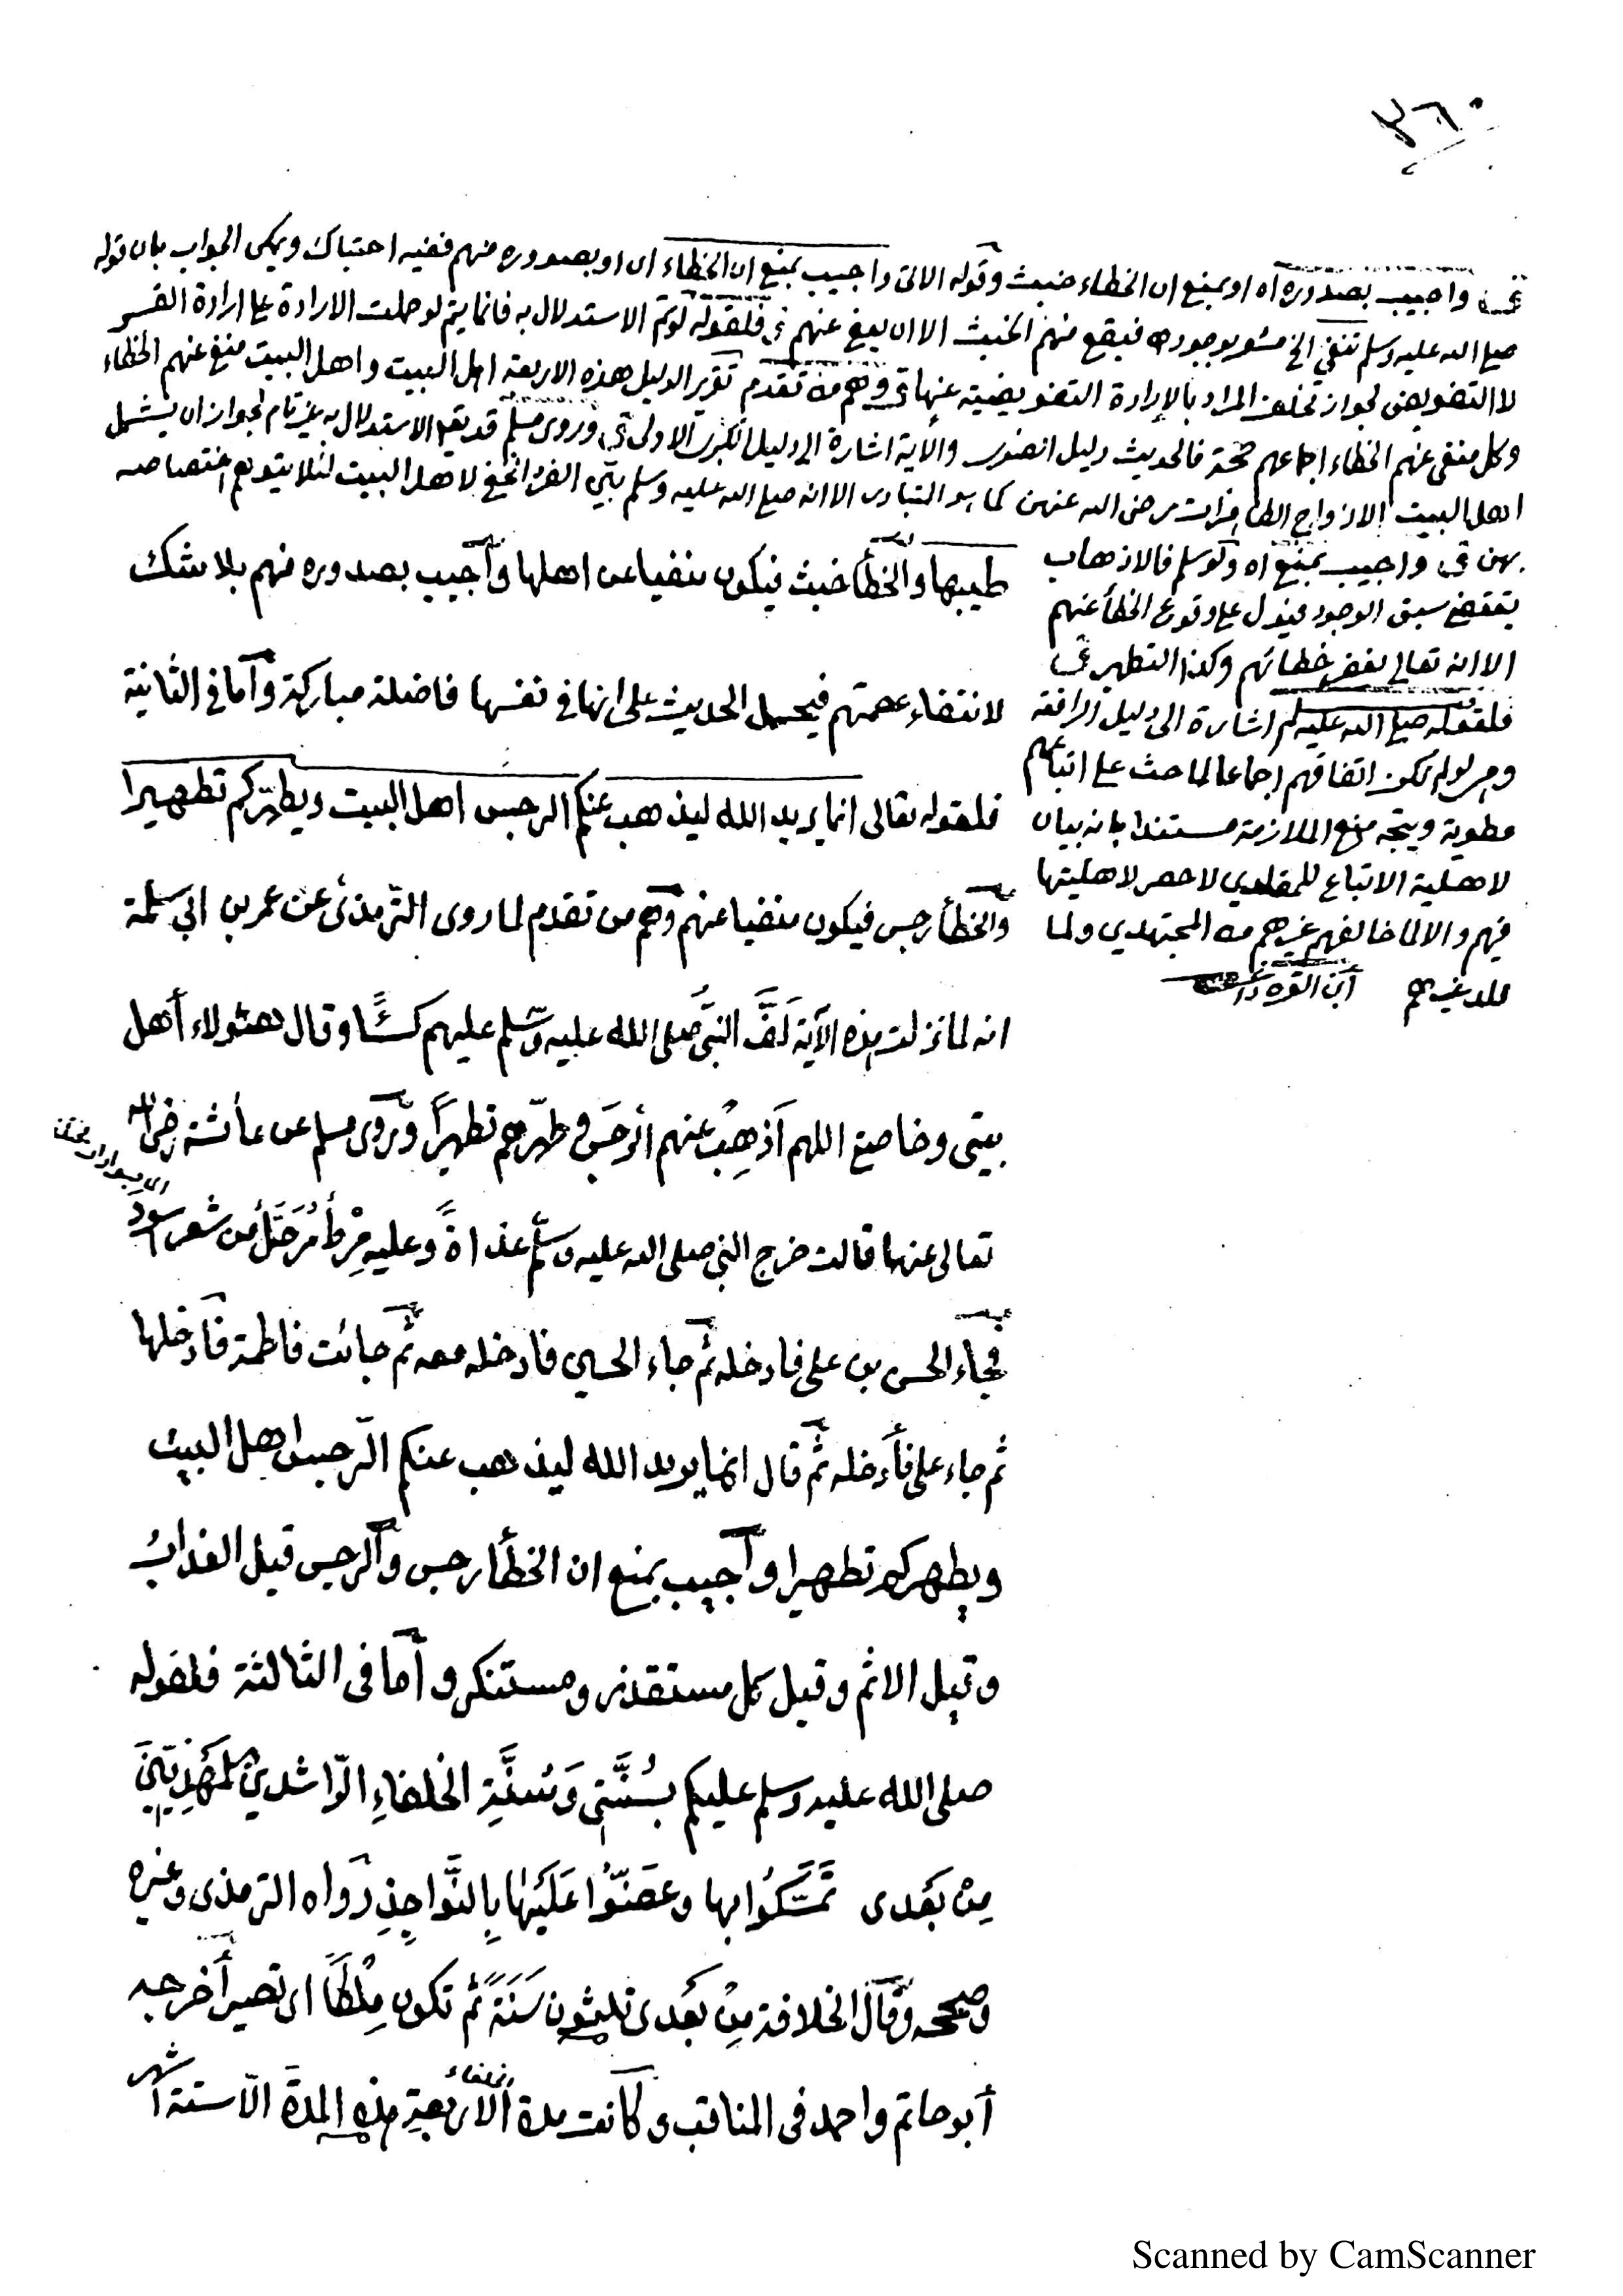 ٣٦٠
واجيب بصدوره اه او بمنع ان الخطاء خبث وقوله الاتى واجيب بمنع ان الخطاء اى او بصدوره منهم ففيه احتباك ويمكن الجواب بان قوله
صلى الله عليه وسلم تنفى الخ مشعر بوجوده فيقع منهم الخبث الا ان ينفى عنهم فلقوله لو تم الاستدلال به فانما يتم لو حملت الارادة على ارادة القسر
لا التفويض لجواز تخلف المراد بالإرادة التفويضية عنها وهم من تقدم تقرير الدليل هذه الاربعة اهل البيت واهل البيت منفى عنهم الخطاء
وكل منفى عنهم الخطاء اجماعهم حجة فالحديث دليل الصغرى والآية اشارة الى دليل الكبرى الاولى وروى مسلم قد يقال الاستدلال به غير تام لجواز ان يشمل
اهل البيت الازواج الطاهرات رضى الله عنهن كما هو المتبادر الا انه صلى الله عليه وسلم بيّن الفرد الخفى لاهل البيت لئلا يتوهم اختصاصه
بهن واجيب بمنع اه ولو سلم فالاذهاب
يقتضى سبق الوجود فيدل على وقوع الخطأ عنهم
الا انه تعالى يغفر خطائهم وكذا التطهير
فلقوله صلى الله عليه وسلم اشارة الى دليل الرافعة
وهى لو لم تكن اتفاقهم اجماعا لما حث على اتباعهم
مطوية ويتجه منع الملازمة مستندا بانه بيان
لاهلية الاتباع للمقلدين لا حصر لاهليتها
فيهم والا لما خالفهم غيرهم من المجتهدين ولما
قلد غيرهم ابن القره داغى
طيبها والخطأ خبث فيكون منفيا عن اهلها وأجيب بصدوره منهم بلا شك
لانتفاء عصمتهم فيحمل الحديث على انها فى نفسها فاضلة مباركة وأما فى الثانية
فلقوله تعالى انما يريد الله ليذهب عنكم الرجس اهل البيت ويطهّركم تطهيرا
والخطأ رجس فيكون منفيا عنهم وهم من تقدم لما روى الترمذى عن عمر بن ابى سلمة
انه لما نزلت هذه الآية لَفَّ النبىُّ صلى الله عليه وسلّم عليهم كساءً وقال هٰؤلاء أهل
بيتى وخاصتى اللهم أَذهِبْ عنهم الرجسَ وطهّرهم تطهيراً ورَوى مسلم عن عائشة رضى الله
تعالى عنها قالت خرج النبى صلى الله عليه وسلّم غداةً وعليه مِرْطٌ مُرَحَّلٌ من شعر اسود
فجاء الحسن بن على فادخله ثم جاء الحسين فادخله معه ثم جائت فاطمة فأدخلها
ثم جاء على فأدخله ثم قال انما يريد الله ليذهب عنكم الرّجس اهل البيت
ويطهركم تطهيرا وأجيب بمنع ان الخطأ رجس والرجس قيل العذاب
وقيل الاثم وقيل كل مستقذر ومستنكر وأما فى الثالثة فلقوله
صلى الله عليه وسلم عليكم بسُنَّتى وَسُنَّةِ الخلفاءِ الرّاشدين المَهْدِيّيْنَ
مِنْ بَعْدى تَمَسَّكُوا بها وعَضُّوا عَلَيْهَا بِالنَّوَاجِذِ رواه الترمذى وغيره
وصححه وقال الخلافة مِنْ بَعْدى ثلثون سَنَةً ثم تكون مِلْكًا اى تصير أخرجه
أبو حاتم واحمد فى المناقب وكانت مدة الخلفاء الاربعةِ هذه المدة الّا ستة اشهر